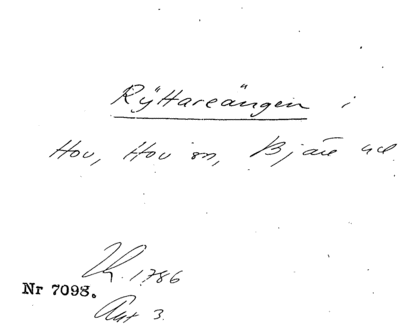 Ryttareängen i
Hov, Hov sn, Bjäre hd
1786
Nr 7098.
Akt 3.